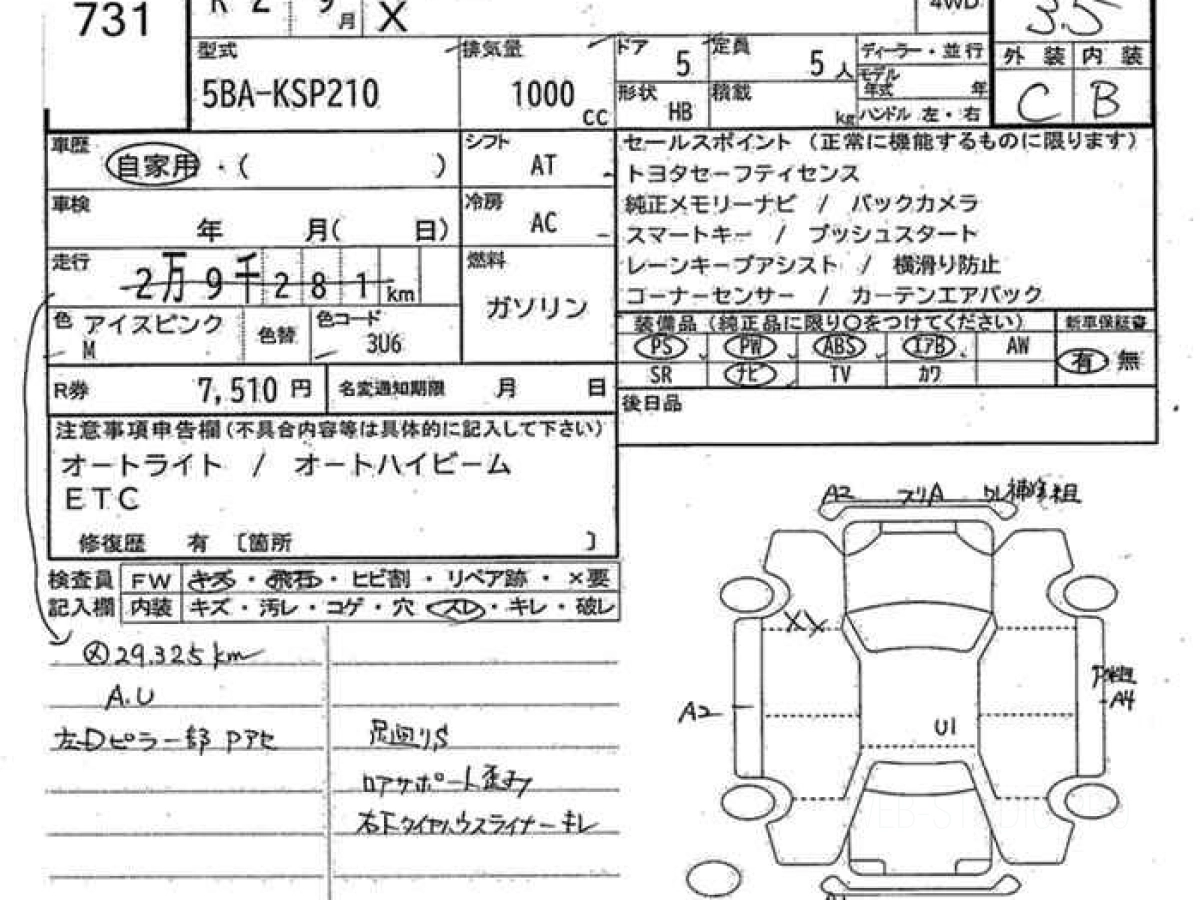 731
R 2 9月 X 4WD 3.5
型式 排気量 ドア 5 定員 5人 ディーラー・並行 外装 内装
5BA-KSP210 1000 cc 形状 HB 積載 kg モデル年式 年 C B
ハンドル 左・右
車歴 自家用・( ) シフト AT
セールスポイント (正常に機能するものに限ります)
トヨタセーフティセンス
車検 年 月( 日) 冷房 AC
純正メモリーナビ / バックカメラ
スマートキー / プッシュスタート
走行 2万9千281km 燃料 ガソリン
レーンキープアシスト / 横滑り防止
コーナーセンサー / カーテンエアバック
色 アイスピンク M 色替 色コード 3U6
装備品(純正品に限り○をつけてください) 新車保証書
PS PW ABS エアB AW 有 無
SR ナビ TV カワ
R券 7,510円 名変通知期限 月 日
後日品
注意事項申告欄(不具合内容等は具体的に記入して下さい)
オートライト / オートハイビーム
ETC
修復歴 有 〔箇所 〕
検査員 FW キズ・飛石・ヒビ割・リペア跡・×要
記入欄 内装 キズ・汚レ・コゲ・穴・スレ・キレ・破レ
メ 29.325km
A.U
左Dピラー部 Pアセ
足回りS
ロアサポート歪み
右Fタイヤハウスライナーキレ
A2 スリA
XX
A2
U1
A4